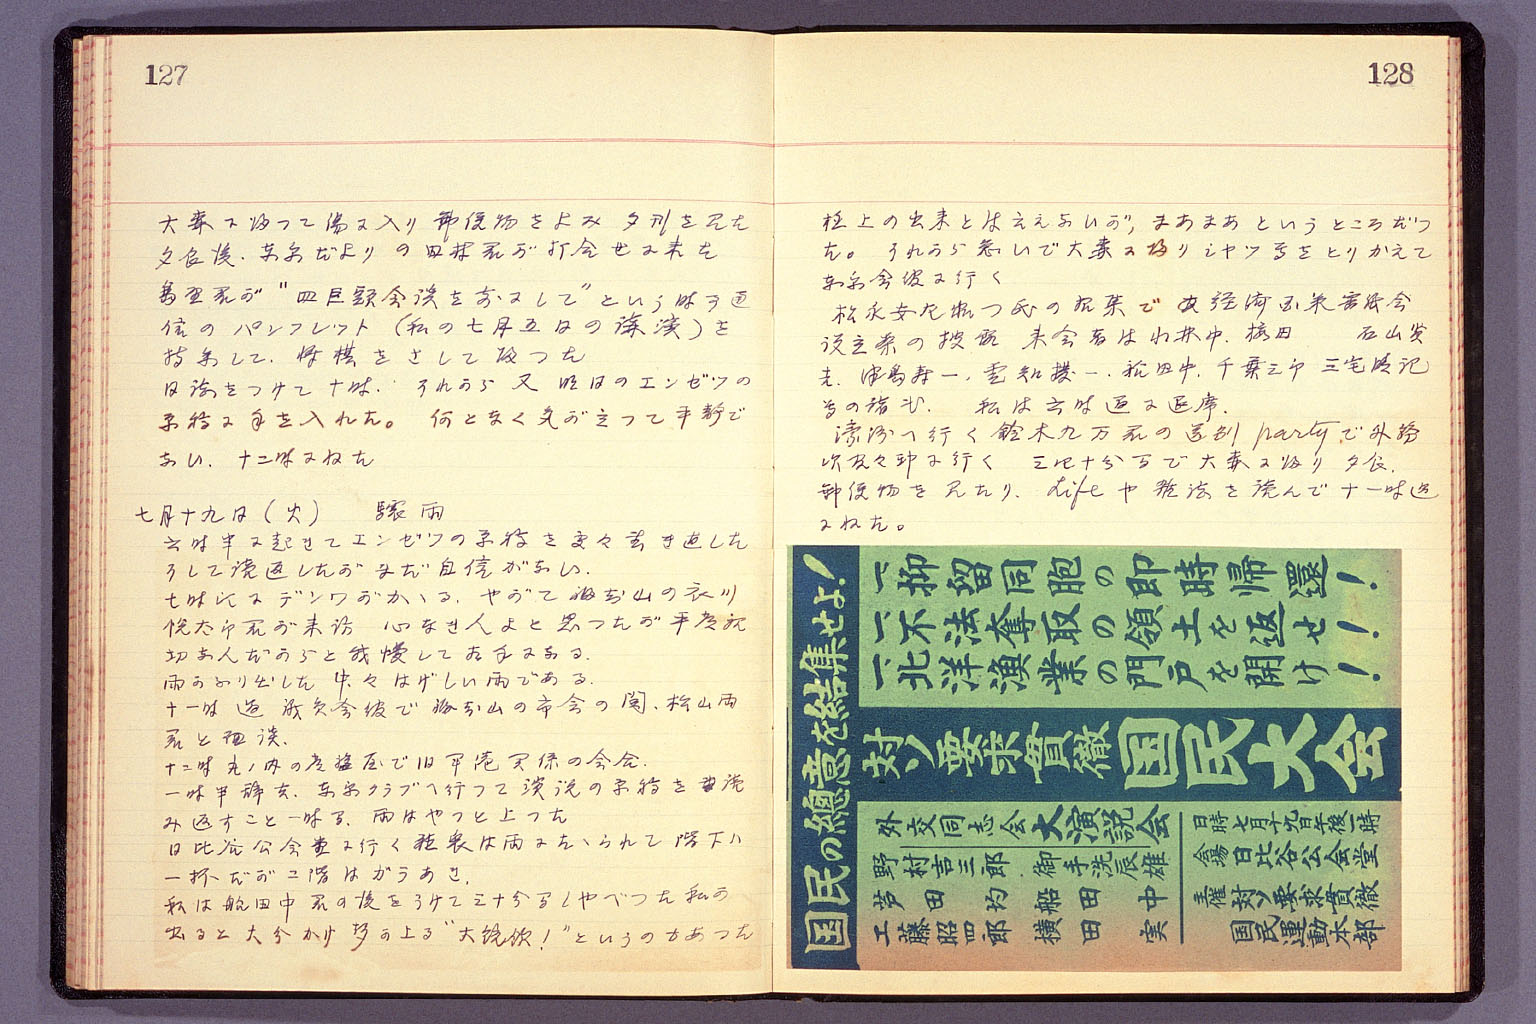 127
大森に帰つて湯に入り 郵便物をよみ 夕刊を見た
夕食後、東京だより の田村君が打合せに来た
君が "四巨頭会談を前にして" という時事通
信の パンフレット (私の七月五日の講演)を
持参して、将棋をさして帰つた
日誌をつけて十時、それから 又 明日のエンゼツの
原稿に手を入れた。 何となく気が立つて平静で
ない、十二時にねた
七月十九日(火) 驟雨
六時半に起きてエンゼツの原稿を更々書き直した
そして読返したがまだ自信がない、
七時頃にデンワがかゝる、やがて福知山の衣川
君が来訪 心なき人よと思つたが
切な人だからと我慢して
雨がふり出した 中々はげしい雨である、
十一時過 会館で福知山の市会の関、松山両
君と面談、
十二時丸ノ内の で旧 関係の会合、
一時半辞去、東京クラブへ行つて演説の原稿を読
み返すこと一時間、雨はやつと上つた
日比谷公会堂に行く聴衆は雨にたゝられて階下ハ
一杯だが二階はがらあき、
私は船田中君の後をうけて三十分間しやべつた私が
出ると大分かけ声の上る "大統領!" というのもあつた
128
極上の出来とは云えないが、まあまあ というところだつ
た。 それから急いで大森に帰りシャツ等をとりかえて
東京会館に行く
松永安左衛門氏の招集で 経済 会
設立案の披露 来会者は 石山賢
吉、津島寿一、愛知揆一、船田中、千葉三郎 三宅晴輝
等の諸氏、 私は六時過に退席、
濠洲へ行く鈴木九万君の送別partyで外務
次官々邸に行く 三四十分間で大森に帰り 夕食、
郵便物を見たり、Lifeや雑誌を読んで十一時過
にねた。
国民の總意を結集せよ!
一、抑留同胞の即時帰還!
一、不法奪取の領土を返せ!
一、北洋漁業の門戸を開け!
対ソ要求貫徹 国民大会
外交同志会大演説会
野村吉三郎 御手洗辰雄
芦田均 船田中
工藤昭四郎 横田実
日時 七月十九日午後一時
会場 日比谷公会堂
主催 対ソ要求貫徹
国民運動本部